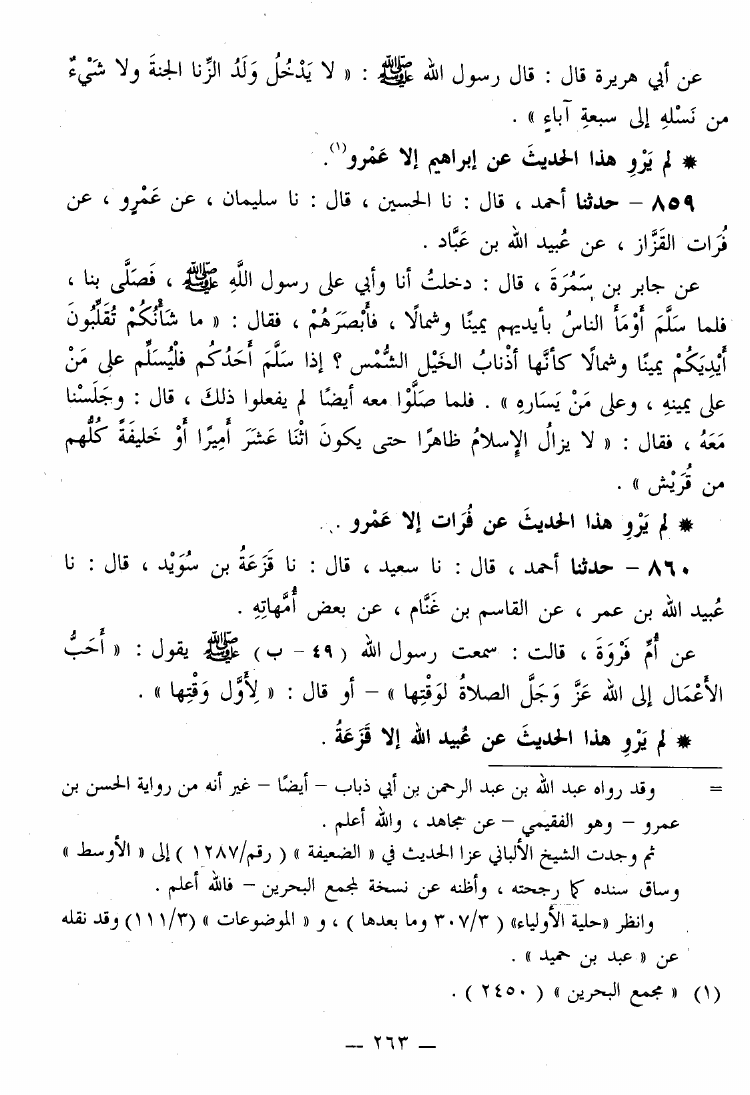 عن أبي هريرة قال : قال رسول الله ﷺ : « لا يَدْخُلُ وَلَدُ الزِّنا الجنةَ ولا شَيْءٌ
من نَسْلهِ إلى سبعةِ آباءٍ » .
* لم يَرْوِ هذا الحديثَ عن إبراهيم إلا عَمْرو(١).
٨٥٩ – حدثنا أحمد ، قال : نا الحسين ، قال : نا سليمان ، عن عَمْرٍو ، عن
فُرَات القَزَّاز ، عن عُبيد الله بن عَبَّاد .
عن جابر بن سَمُرَةَ ، قال : دخلتُ أنا وأبي على رسول اللَّهِ ﷺ ، فَصَلَّى بنا ،
فلما سَلَّمَ أَوْمَأَ الناسُ بأيديهم يمينًا وشمالًا ، فأَبْصَرَهُمْ ، فقال : « ما شَأْنُكُمْ تُقَلِّبُونَ
أَيْدِيَكُمْ يمينًا وشمالًا كأنَّها أذْنابُ الخَيْل الشُّمْس ؟ إذا سَلَّمَ أَحَدُكُم فلْيُسَلِّم على مَنْ
على يمينهِ ، وعلى مَنْ يَسَارهِ » . فلما صَلَّوْا معه أيضًا لم يفعلوا ذلكَ ، قال : وجَلَسْنا
مَعَهُ ، فقال : « لا يزالُ الإسلامُ ظاهرًا حتى يكونَ اثْنَا عَشَرَ أَمِيرًا أَوْ خَلِيفَةً كُلُّهم
من قُرَيْش » .
* لم يَرْوِ هذا الحديثَ عن فُرَات إلا عَمْرو .
٨٦٠ – حدثنا أحمد ، قال : نا سعيد ، قال : نا قَزَعَةُ بن سُوَيْد ، قال : نا
عُبيد الله بن عمر ، عن القاسم بن غَنَّام ، عن بعض أُمَّهاتِهِ .
عن أُمِّ فَرْوَةَ ، قالت : سمعت رسول الله ( ٤٩ – ب ) ﷺ يقول : « أَحَبُّ
الأَعْمَال إلى الله عَزَّ وَجَلَّ الصلاةُ لوَقْتِها » – أو قال : « لِأَوَّل وَقْتِها » .
* لم يَرْوِ هذا الحديثَ عن عُبيد الله إلا قَزَعَةُ .
= وقد رواه عبد الله بن عبد الرحمن بن أبي ذباب – أيضًا – غير أنه من رواية الحسن بن
عمرو – وهو الفقيمي – عن مجاهد ، والله أعلم .
ثم وجدت الشيخ الألباني عزا الحديث في « الضعيفة » ( رقم/١٢٨٧ ) إلى « الأوسط »
وساق سنده كما رجحته ، وأظنه عن نسخة لمجمع البحرين – فالله أعلم .
وانظر «حلية الأولياء» ( ٣٠٧/٣ وما بعدها ) ، و « الموضوعات » (١١١/٣) وقد نقله
عن « عبد بن حميد » .
(١) « مجمع البحرين » ( ٢٤٥٠ ) .
– ٢٦٣ –